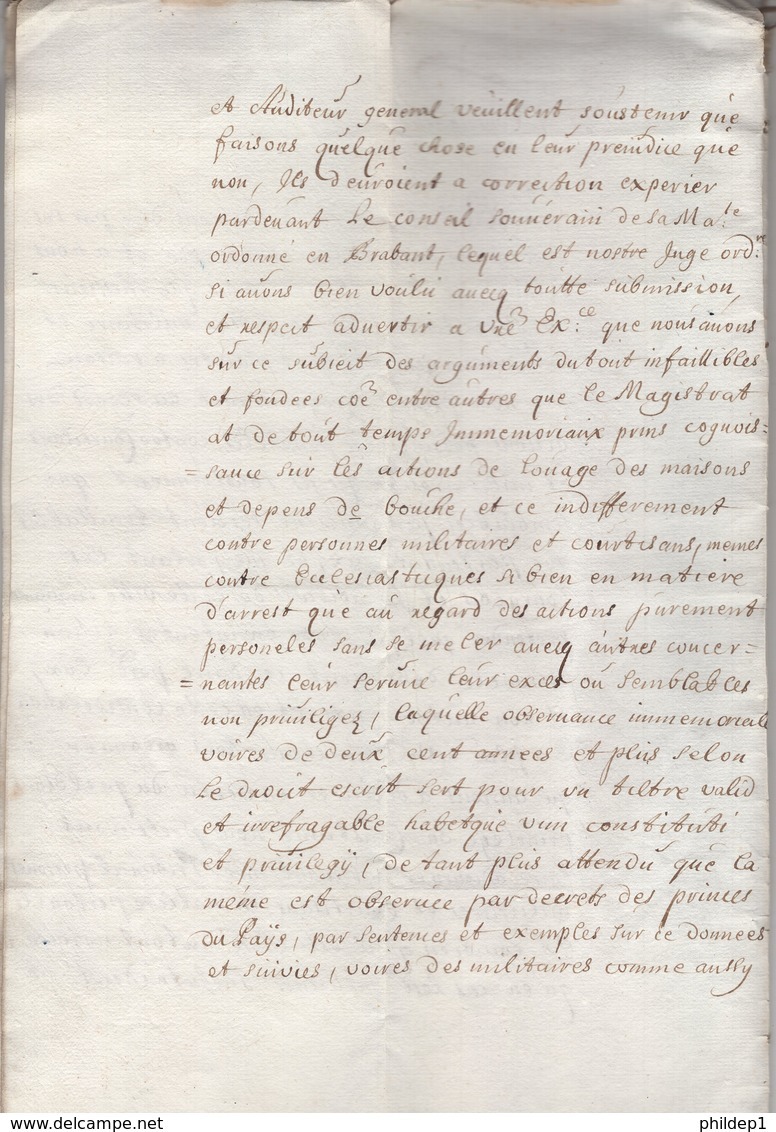 et Auditeur general veuillent soustenir que
faisons quelque chose en leur preiudice que
non, Ils deuroient a correction experier
pardeuant Le conseil souuerain de sa Ma.te
ordonné en Brabant, lequel est nostre Juge ord.re
si auons bien voulu auecq toutte submission,
et respect aduertir a Vre Ex.ce que nous auons
sur ce subieit des arguments du tout infaillibles
et fondees coe entre autres que le Magistrat
at de tout temps Jmmemoriaux prins cognois=
=sance sur les actions de louage des maisons
et depens de bouche, et ce indifferement
contre personnes militaires et courtisans, memes
contre Ecclesiasticques si bien en matiere
d'arrest que au regard des actions purement
personeles sans se meler auecq autres concer=
=nantes leur seruice leur exces ou semblables
non priuiligez, laquelle obseruance immemoriale
voires de deux cent annees et plus selon
Le droit escrit sert pour vn tiltre valid
et irrefragable habetque vim constituti
et priuilegÿ, de tant plus attendu que la
méme est obseruee par decrets des princes
du Paÿs, par sentences et exemples sur ce donnees
et suiuies, voires des militaires comme aussy
www.delcampe.net
phildep1